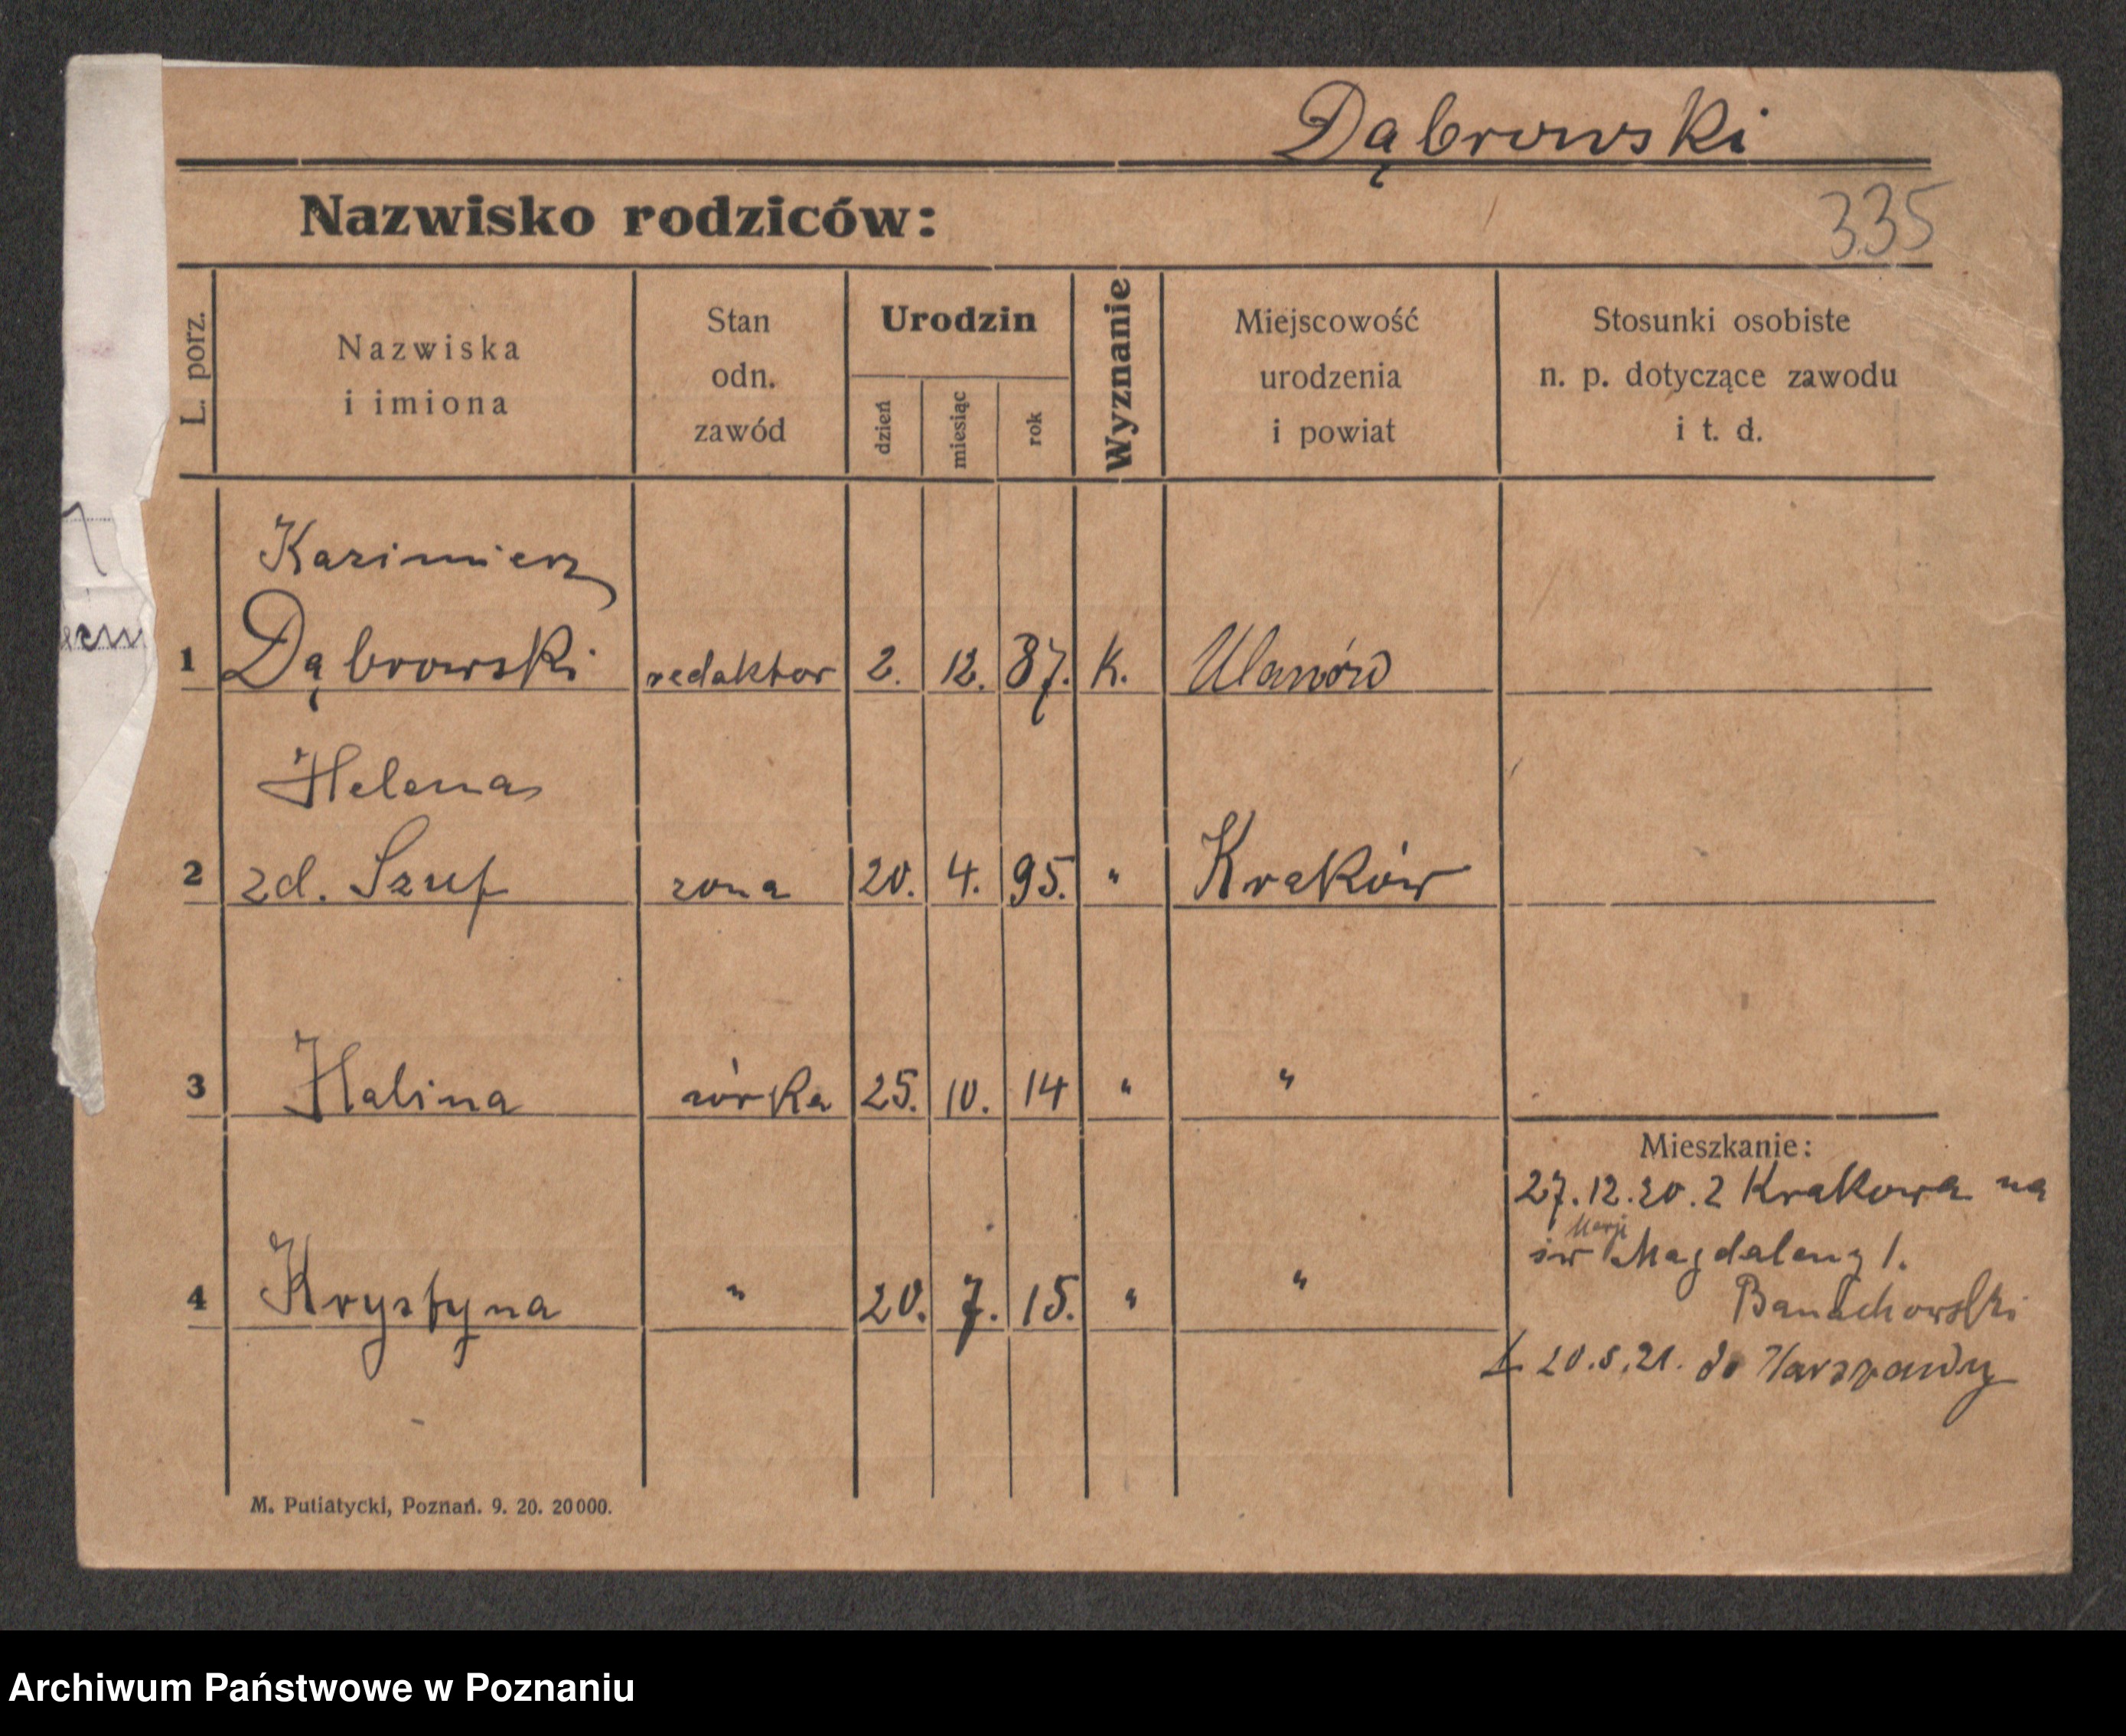 Dąbrowski
Nazwisko rodziców:
335
L. porz.
Nazwiska
i imiona
Stan
odn.
zawód
Urodzin
dzień
miesiąc
rok
Wyznanie
Miejscowość
urodzenia
i powiat
Stosunki osobiste
n. p. dotyczące zawodu
i t. d.
Kazimierz
1 Dąbrowski redaktor 2. 12. 87. K. Ulanów
Helena
2 zd. Szuf zona 20. 4. 95. " Kraków
3 Halina córka 25. 10. 14 " "
Mieszkanie:
27.12.20. z Krakowa na
Marji
św Magdaleny 1.
4 Krystyna " 20. 7. 15. " "
Banachowski
20.5.21. do Warszawy
M. Putiatycki, Poznań. 9. 20. 20000.
Archiwum Państwowe w Poznaniu